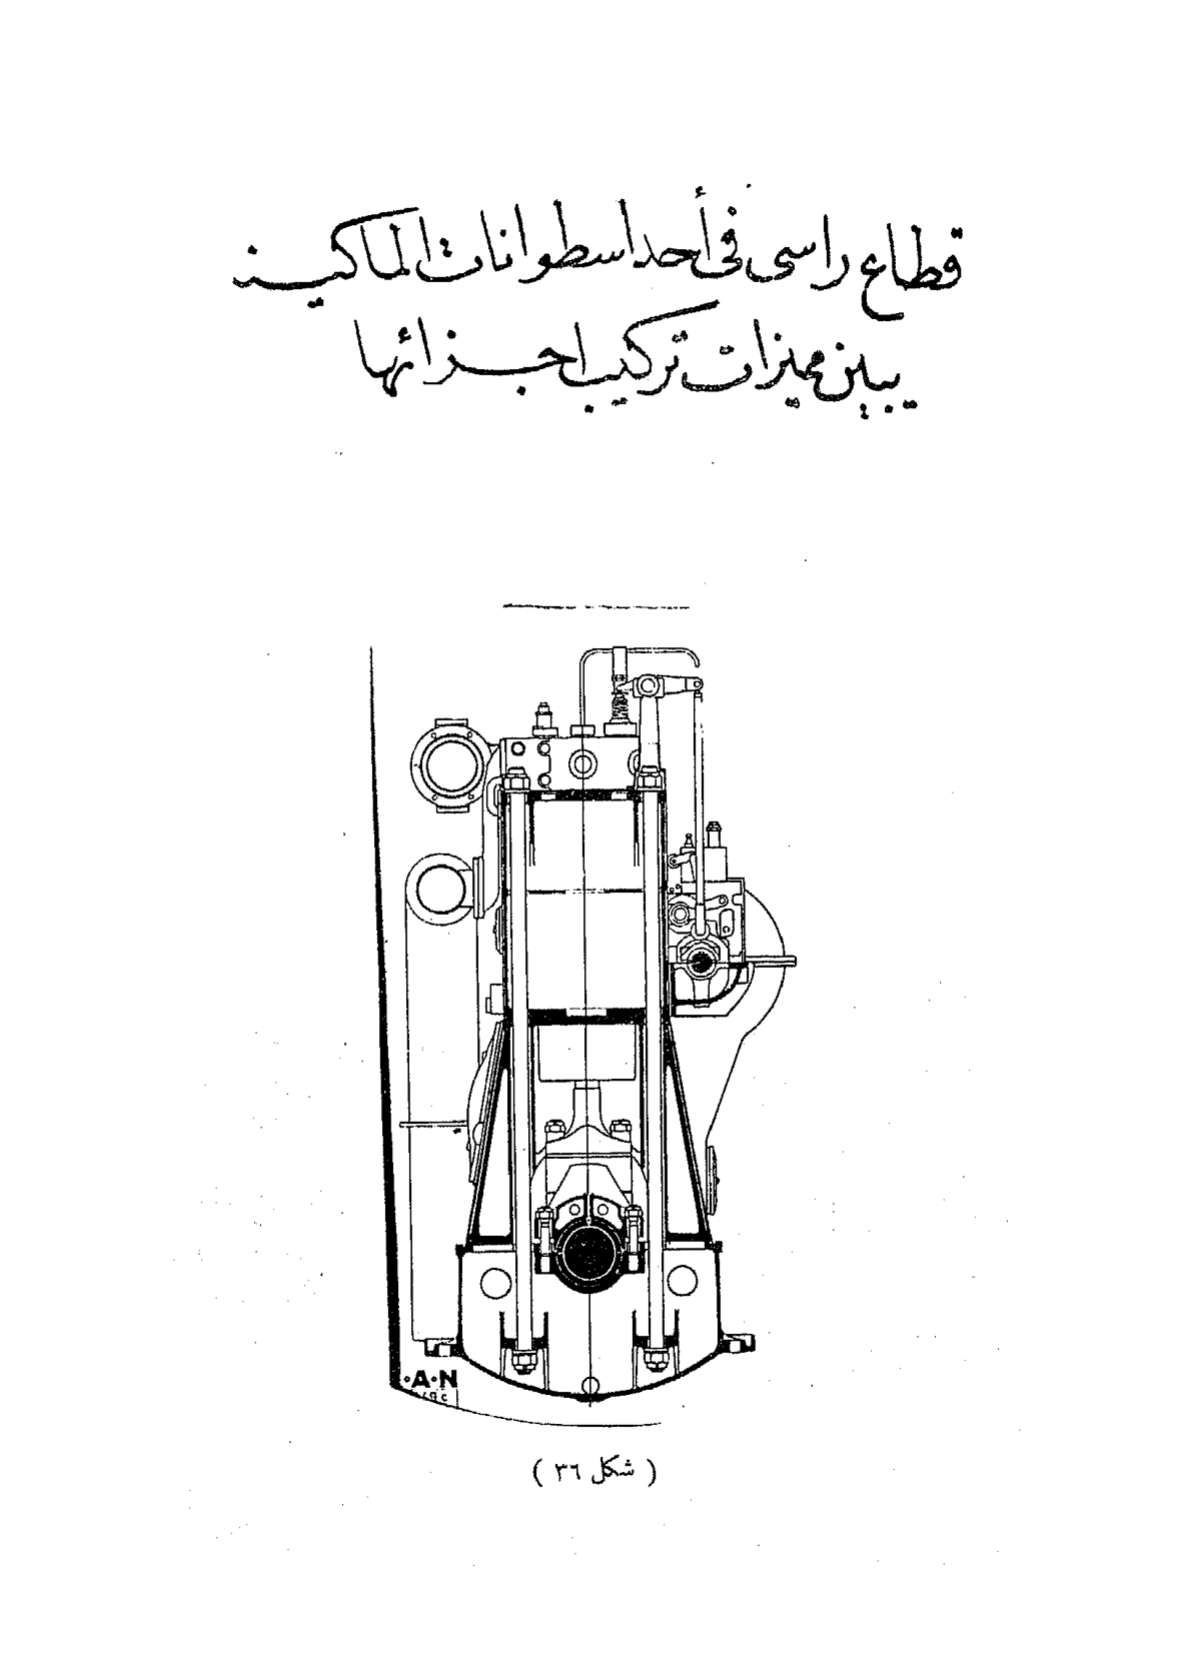 قطاع راسى فى أحد اسطوانات الماكينه
يبين مميزات تركيب اجزائها
·A·N
( شكل ٣٦ )